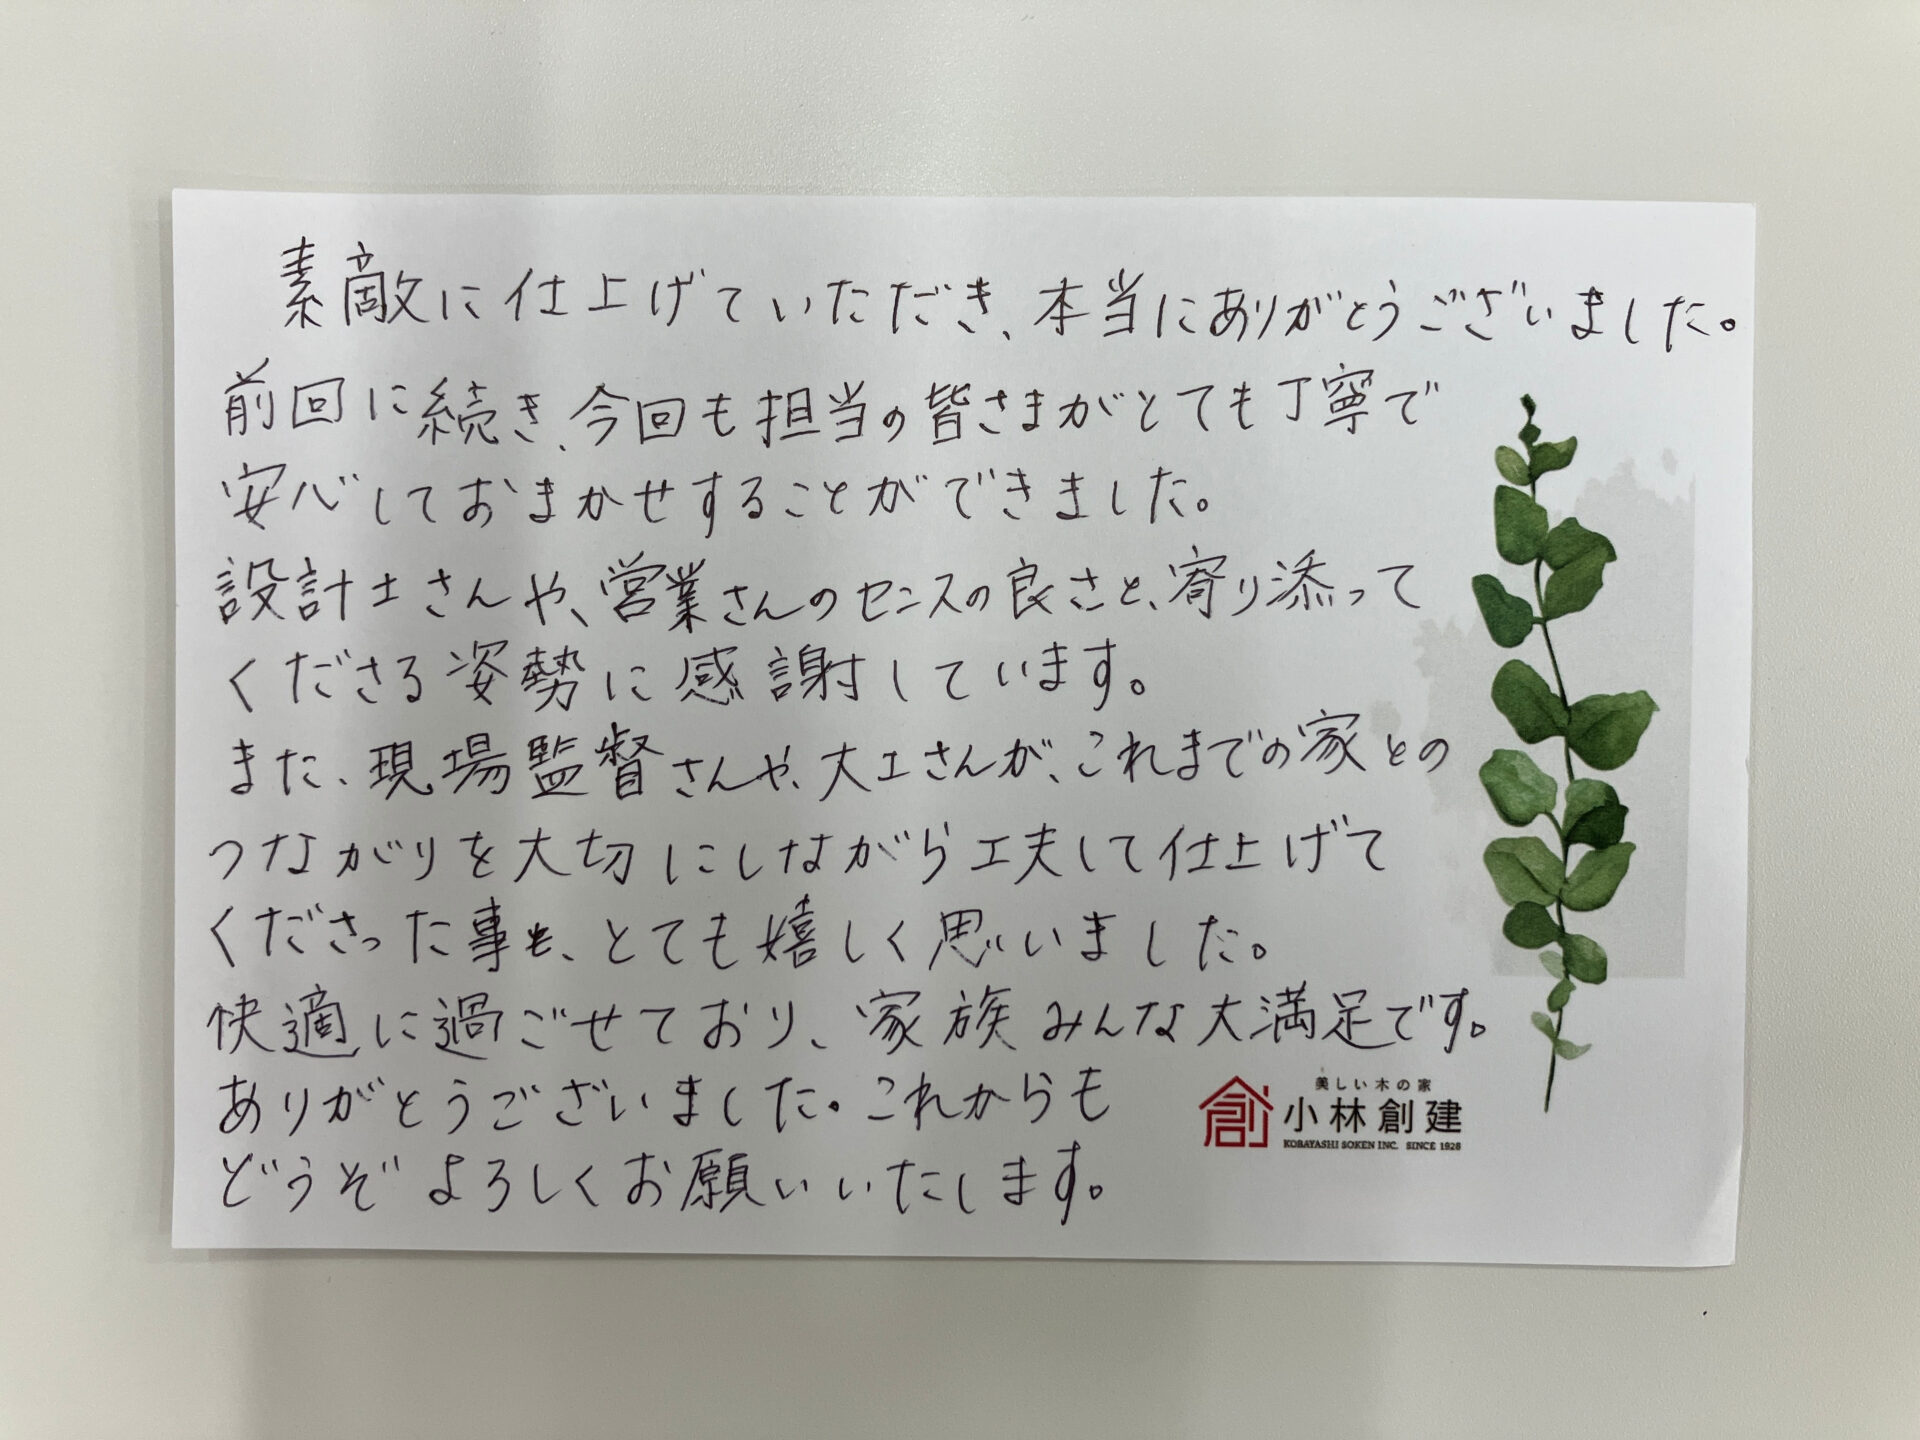 素敵に仕上げていただき、本当にありがとうございました。
前回に続き、今回も担当の皆さまがとても丁寧で
安心しておまかせすることができました。
設計士さんや、営業さんのセンスの良さと、寄り添って
くださる姿勢に感謝しています。
また、現場監督さんや、大工さんが、これまでの家との
つながりを大切にしながら工夫して仕上げて
くださった事も、とても嬉しく思いました。
快適に過ごせており、家族みんな大満足です。
ありがとうございました。これからも
どうぞよろしくお願いいたします。
美しい木の家
創 小林創建
KOBAYASHI SOKEN INC. SINCE 1928